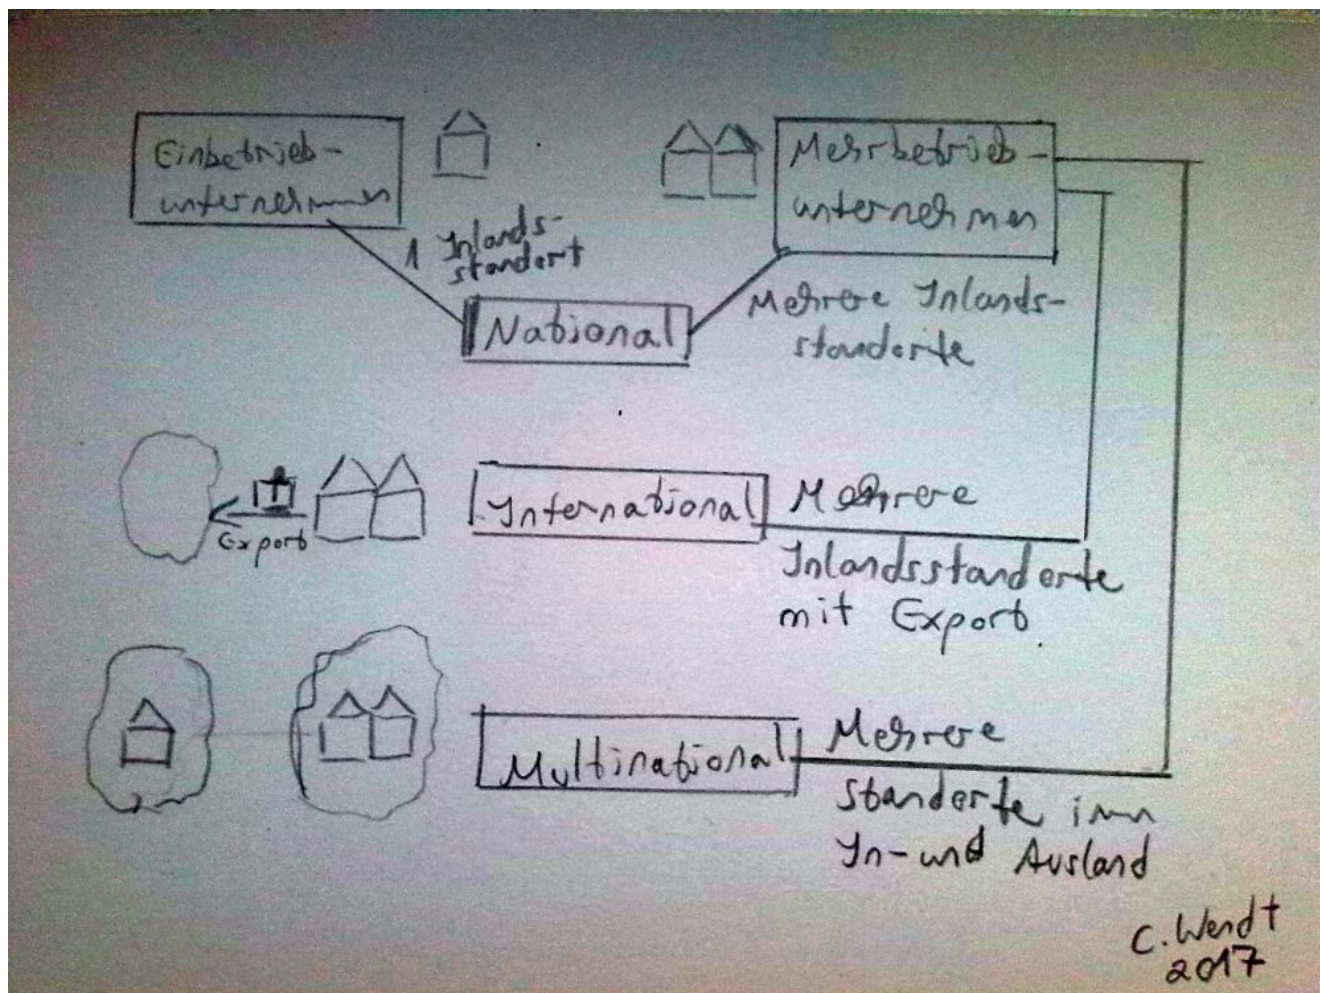 Einbetrieb-
unternehmen
1 Inlands-
standort
Mehrbetrieb-
unternehmen
Mehrere Inlands-
standorte
National
Export
International
Mehrere
Inlandsstandorte
mit Export.
Multinational
Mehrere
Standorte im
In- und Ausland
C. Wendt
2017